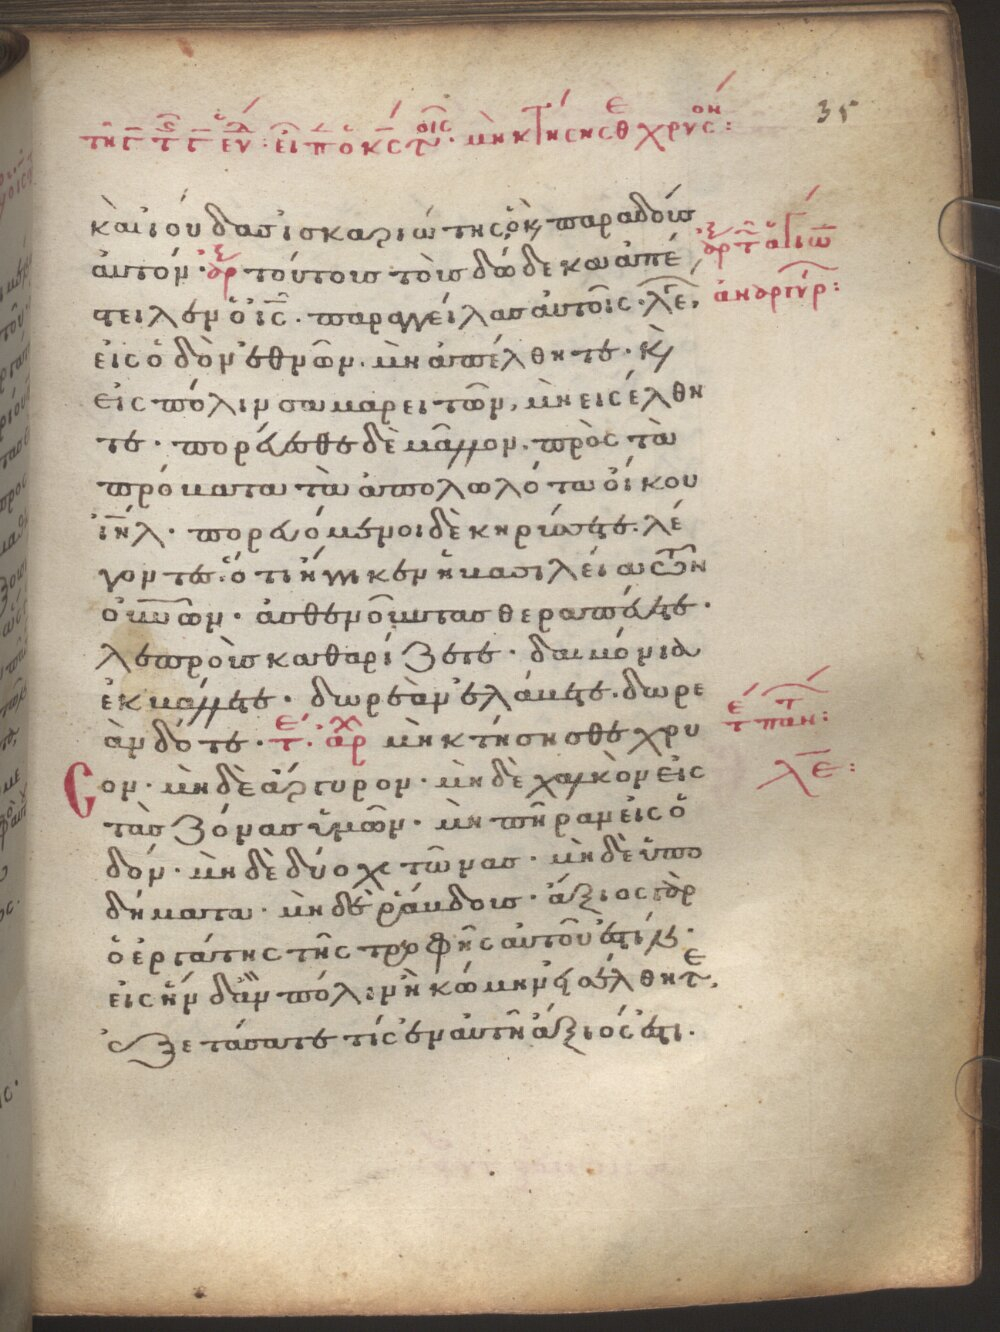 35
μὴ κτήσησθε χρυσον:
καὶ ἰούδασ ἰσκαριώτης, ὁ κ παραδοὺσ
αὐτόν· τούτουσ τοὺσ δώδεκα ἀπέ
στειλεν ὁ ις· παραγγείλασ αὐτοῖς· λε,
εἰς ὁδὸν ἐθνῶν. μὴ ἀπέλθητε· κ
εἰς πόλιν σαμαρειτῶν, μὴ εἰσέλθη
τε· πορεύεσθε δὲ μᾶλλον. πρὸς τὰ
πρόβατα τὰ ἀπολωλότα οἴκου
ιηλ· πορευόμενοι δὲ κηρύσσετε. λέ
γοντες· ὅτι ἤγγικεν ἡ βασιλεία τῶν
οὐνῶν· ἀσθενοῦντας θεραπεύετε·
λεπροὺσ καθαρίζετε· δαιμόνια
ἐκβάλλετε· δωρεὰν ἐλάβετε. δωρε
ὰν δότε· τε· ἀρχ μὴ κτήσησθε χρυ
σον· μὴ δὲ ἄργυρον· μὴ δὲ χαλκὸν εἰς
τὰσ ζόνασ ὑμῶν· μὴ πήραν εἰς ὁ
δόν· μὴ δὲ δύο χιτῶνασ· μὴ δὲ ὑπο
δήματα· μὴ δὲ ῥάβδουσ· ἄξιος γὰρ
ὁ ἐργάτης τῆς τροφῆς αὐτοῦ ἐστιν·
εἰς ἣν δ' ἂν πόλιν ἢ κώμην εἰσέλθητε,
ἐξετάσατε τίς ἐν αὐτῆ ἄξιός ἐστι.
λε: